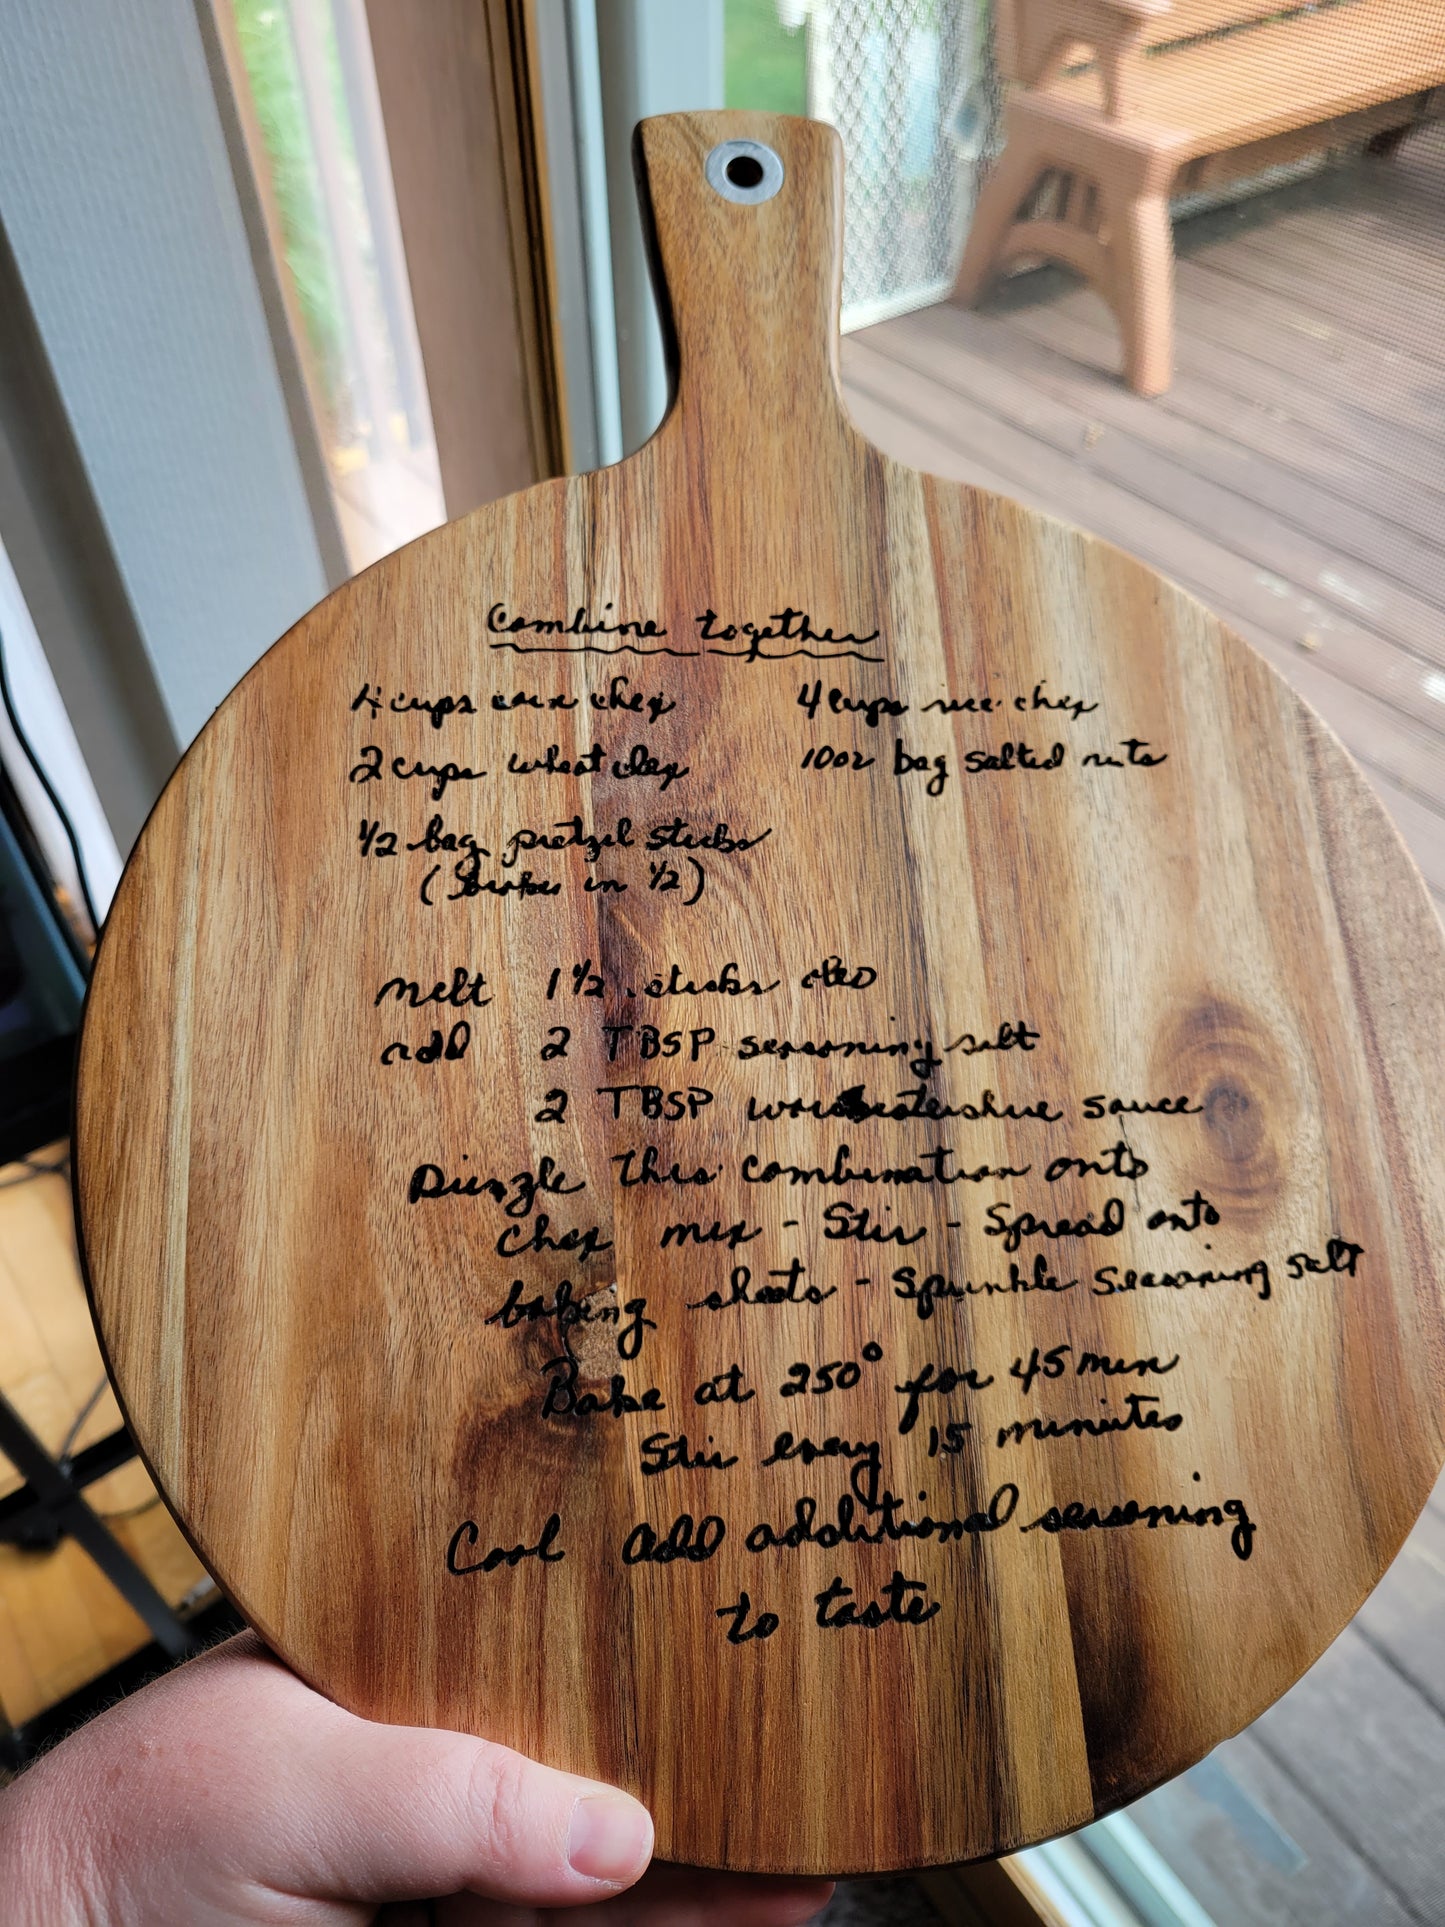 Combine together
4 cups corn chex 4 cups rice chex
2 cups wheat chex 10oz bag salted nuts
1/2 bag pretzel sticks
(broken in 1/2)
melt 1 1/2 sticks oleo
add 2 TBSP seasoning salt
2 TBSP worcestershire sauce
Drizzle this combination onto
chex mix - Stir - Spread onto
baking sheets - Sprinkle seasoning salt
Bake at 250° for 45 min
Stir every 15 minutes
Cool add additional seasoning
to taste